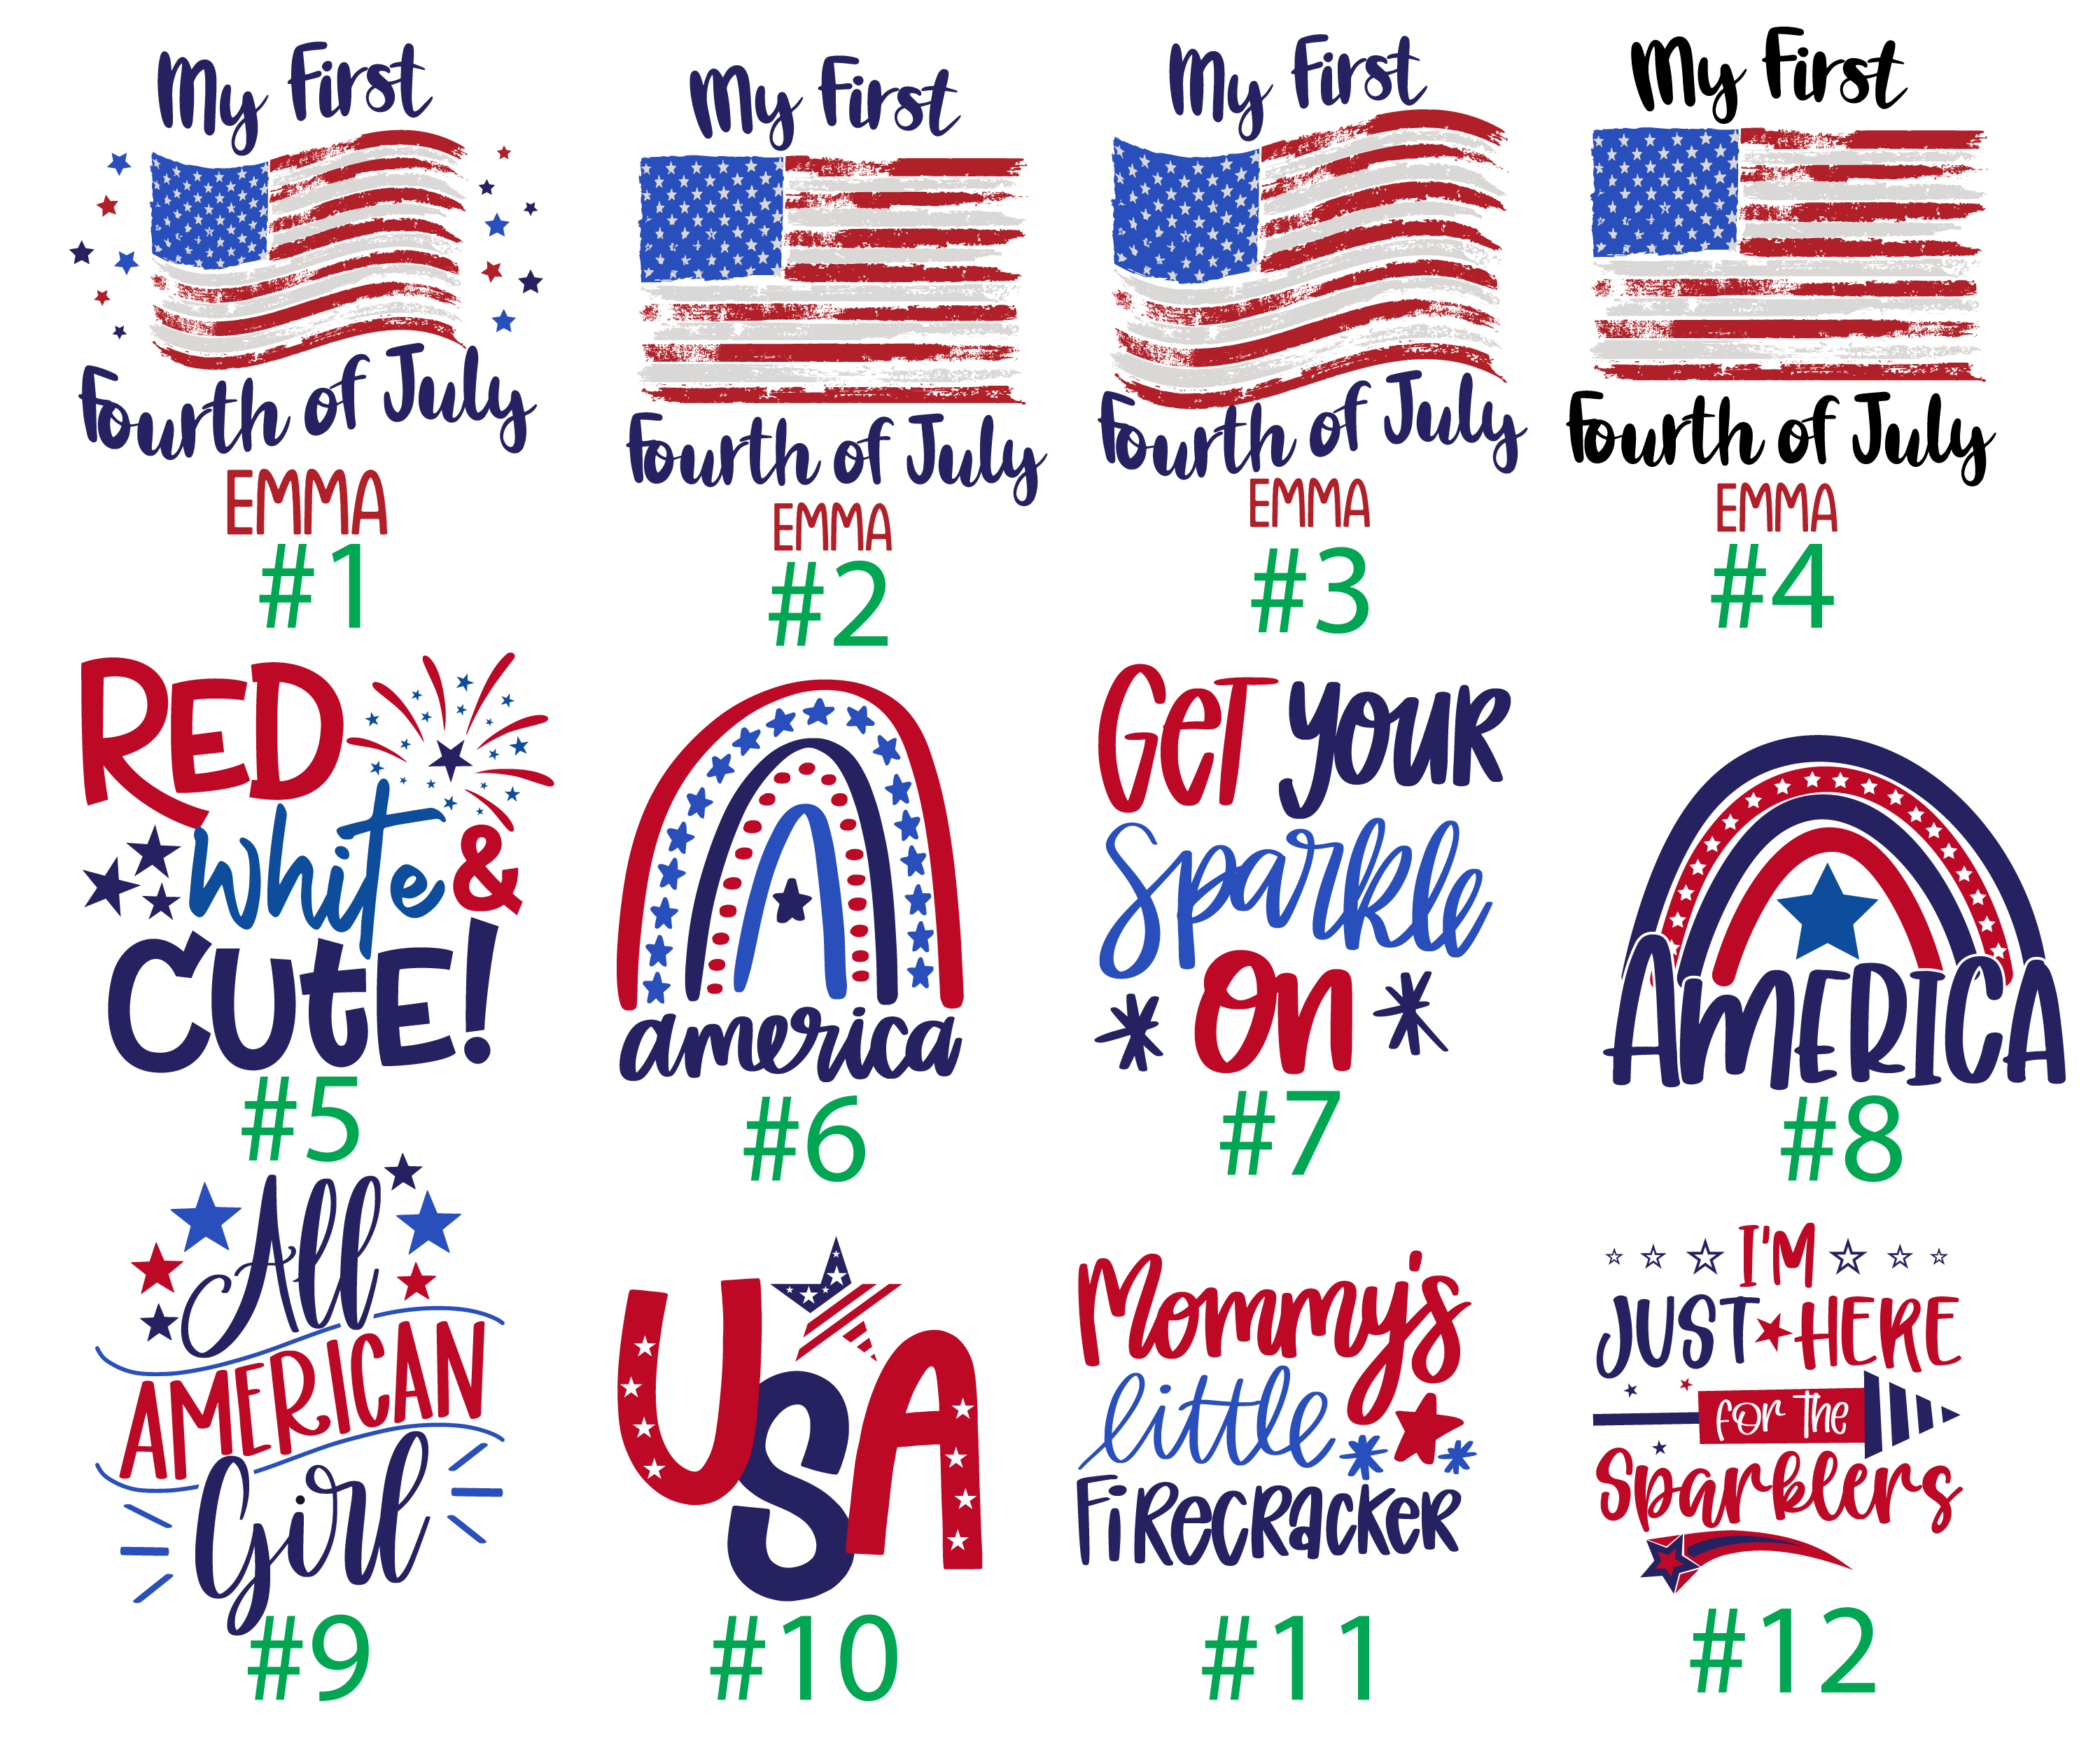 My First
Fourth of July
EMMA
#1
My First
Fourth of July
EMMA
#2
My First
Fourth of July
EMMA
#3
My First
Fourth of July
EMMA
#4
RED
white &
CUtE!
#5
america
#6
GeT your
sparkle
on
#7
AmERICA
#8
All
AMERICAN
Girl
#9
USA
#10
Mommy's
little
FiRecRacker
#11
I'M
JUST HERE
for the
Sparklers
#12